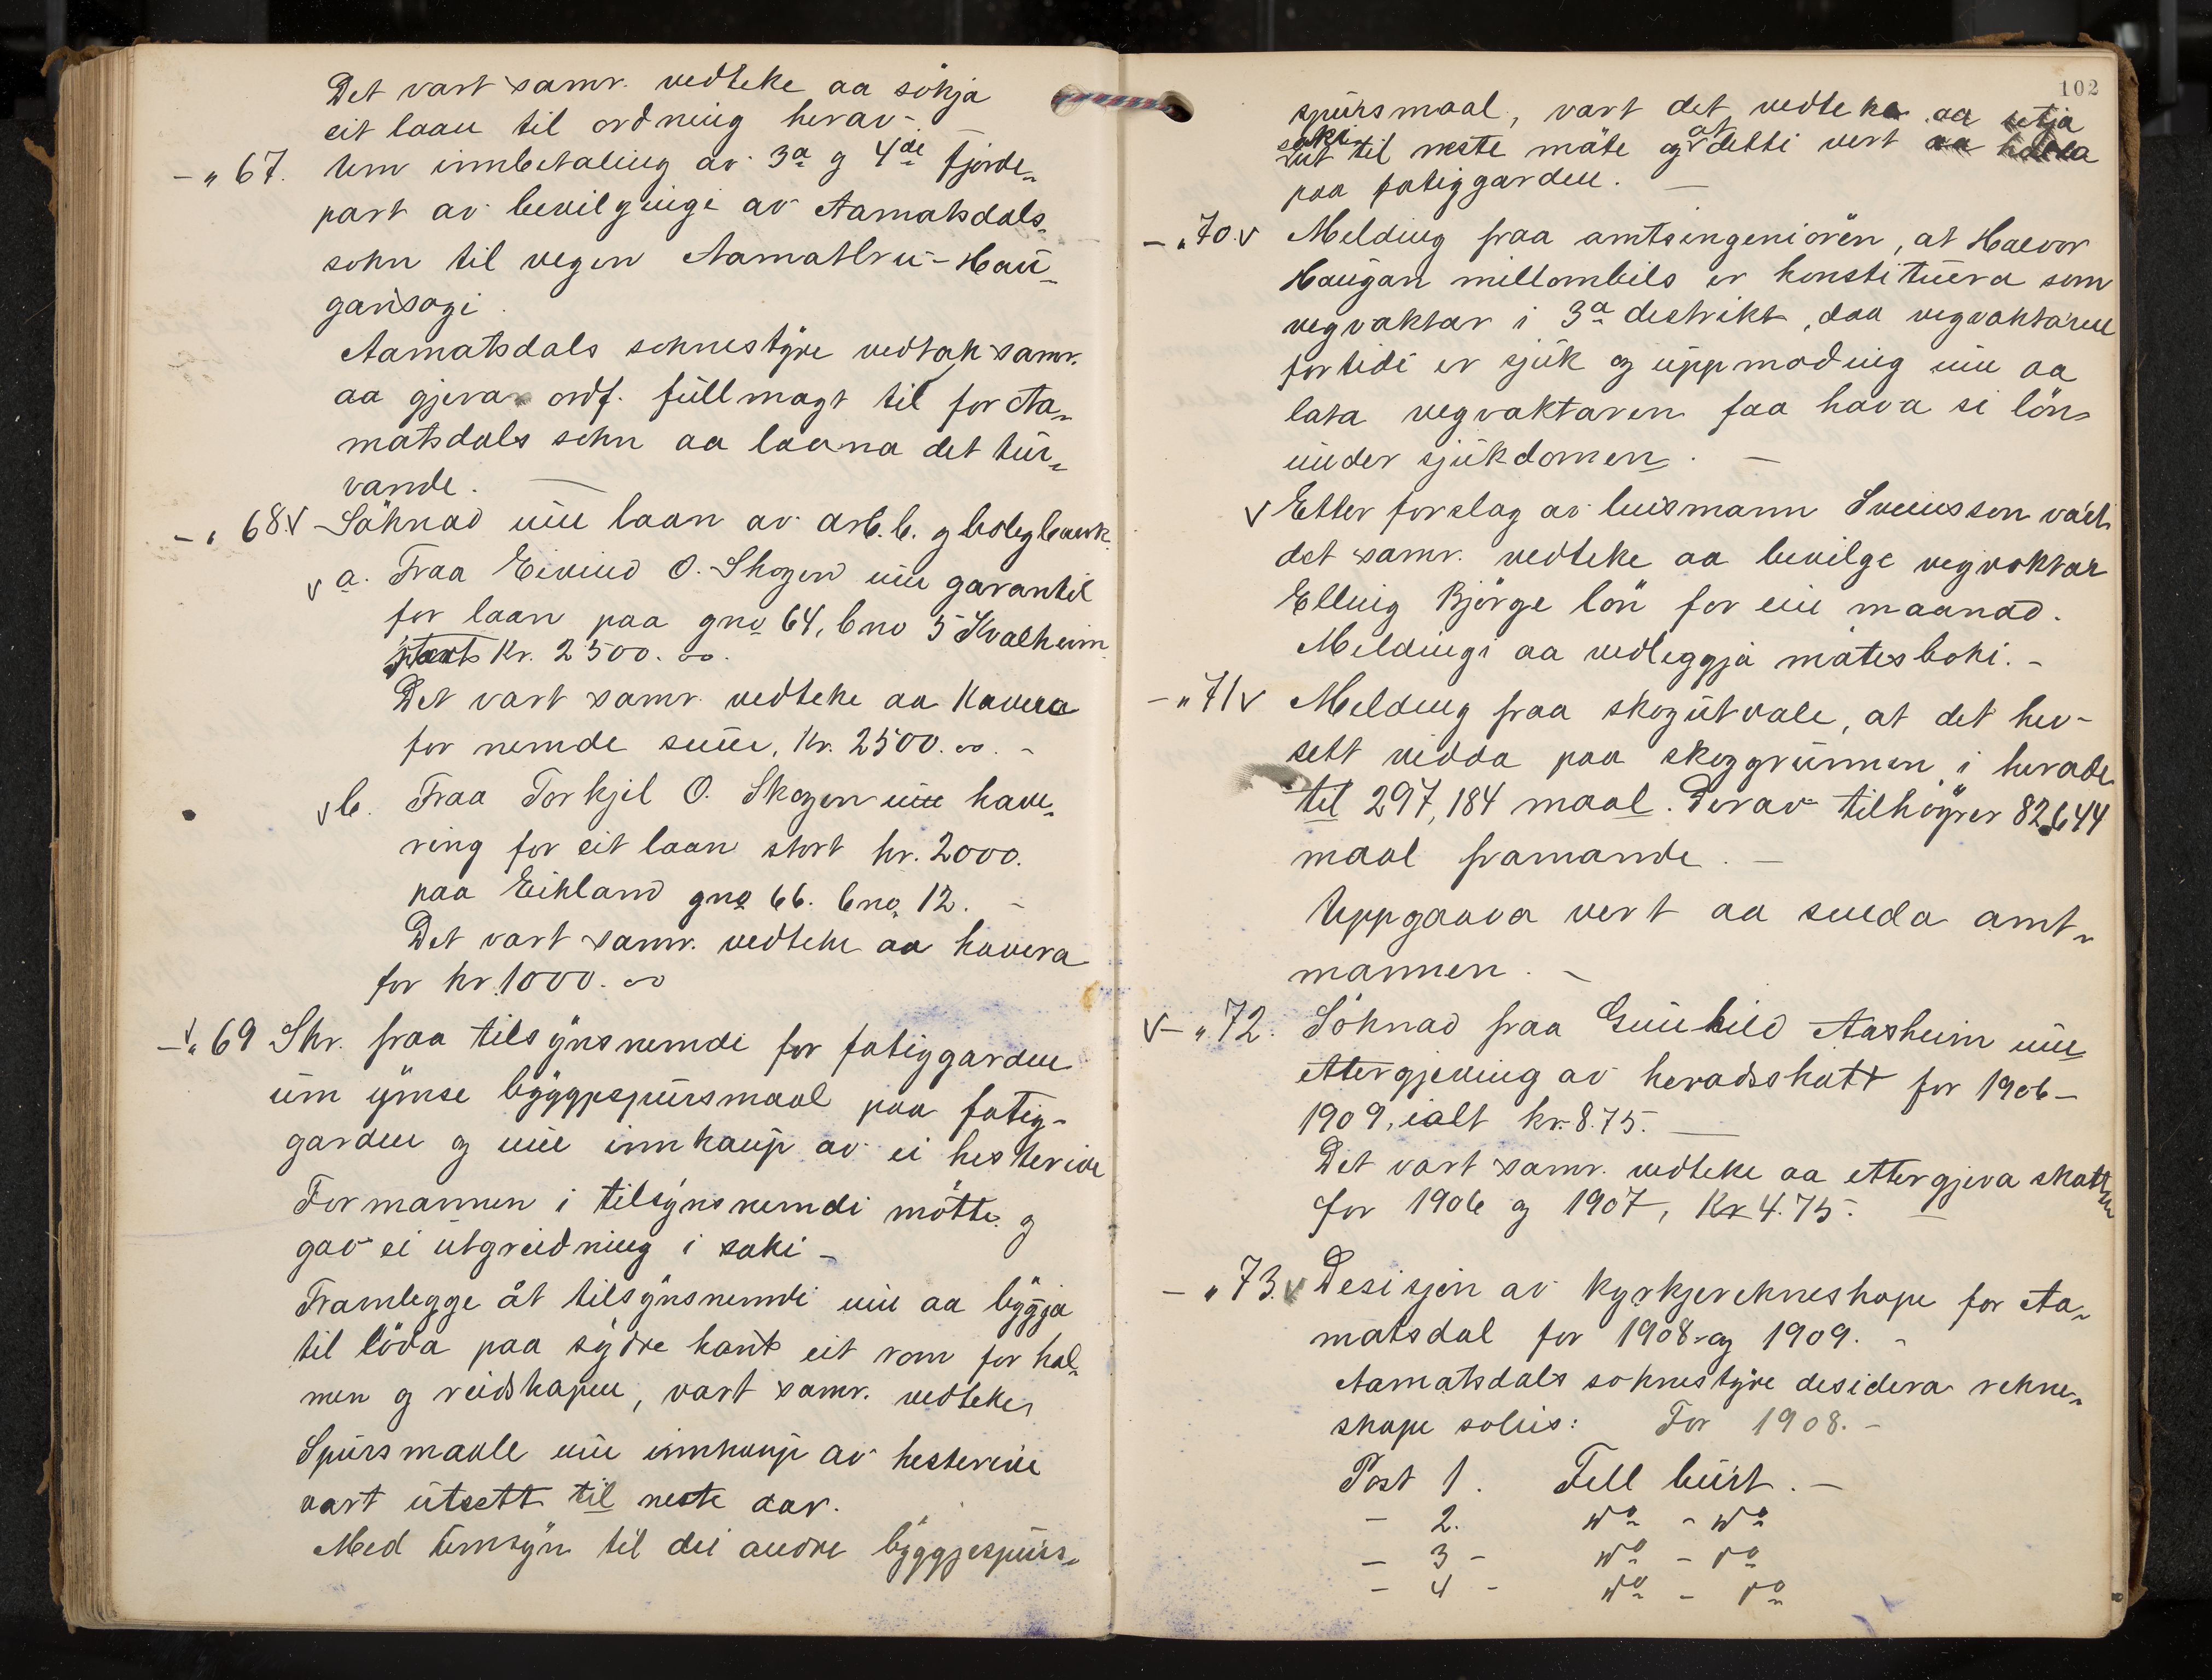 Det vart samr. vedteke aa sökja
eit laan til ordning herav-
- „ 67. Um innbetaling av 3a g 4de fjorde„
part av bevilgingi av Aamotsdals„
sokn til vegen Aamotbru - Hau„
gansagi.
Aamotsdals soknestyre vedtok samr.
aa gjeva ordf. fullmagt til for Aa„
motsdals sokn aa laana det tur„
vande. —
- „ 68 v Söknad um laan av arb. b. g bolegbank.
v a. Fraa Eivind O. Skogen um garanti
for laan paa gno 64, bno 5 Kvalheim
stort Kr. 2500. oo.
Det vart samr. vedteke aa kavera
for nemde sum, Kr. 2500. oo. -
v b. Fraa Torkjel O. Skogen um kave„
ring for eit laan stort kr. 2000.
paa Eikland gno 66. bno 12. -
Det vart samr. vedteke aa kavera
for kr. 1000. oo
- „ 69 Skr. fraa tilsynsnemdi for fatiggarden
um ymse byggjespursmaal paa fatig-
garden og um innkaup av ei hesterive
Formannen i tilsynsnemdi mötte g
gav ei utgreidning i saki -
Framlegge åt tilsynsnemdi um aa byggja
til löda paa sydre kant eit rom for hal„
men g reidskapen, vart samr. vedteke,
Spursmaale um innkaup av hesterive
vart utsett til neste aar.
Med umsyn til dei andre byggjespurs„
102
spursmaal, vart det vedteke aa setja
saki
ut til neste möte og at detti vert aa halda
paa fatiggarden. —
- „ 70. v Melding fraa amtsingeniören, at Halvor
Haugan millombils er konstituera som
vegvaktar i 3a destrikt, daa vegvaktaren
for tidi er sjuk g uppmoding um aa
lata vegvaktaren faa hava si lön
under sjukdomen. —
v Etter forslag av lensmann Sveinsson vart
det samr. vedteke aa bevilge vegvoktar
Elling Bjørge lön for ein maanad.
Meldingi aa vedleggja mötesboki. -
- „ 71 v Melding fraa skogutvale, at det hev-
sett vidda paa skoggrunnen i herade
til 297,184 maal. Derav tilhöyrer 82,644
maal framande. —
Uppgaava vert aa senda amt„
mannen. -
v - „ 72. Söknad fraa Gunhild Aasheim um
ettergjeving av heradsskatt for 1906 -
1909, ialt kr. 8.75. —
Det vart samr. vedteke aa ettergjeva skatten
for 1906 g 1907, Kr 4.75. —
- „ 73. v Desisjon av kyrkjerekneskape for Aa„
motsdal for 1908 og 1909. -
Aamotsdals soknestyre desidera rekne„
skape soleis: For 1908. -
Post 1. Fell burt. -
- 2. do - do
- 3 - do - do
- 4 - do - do